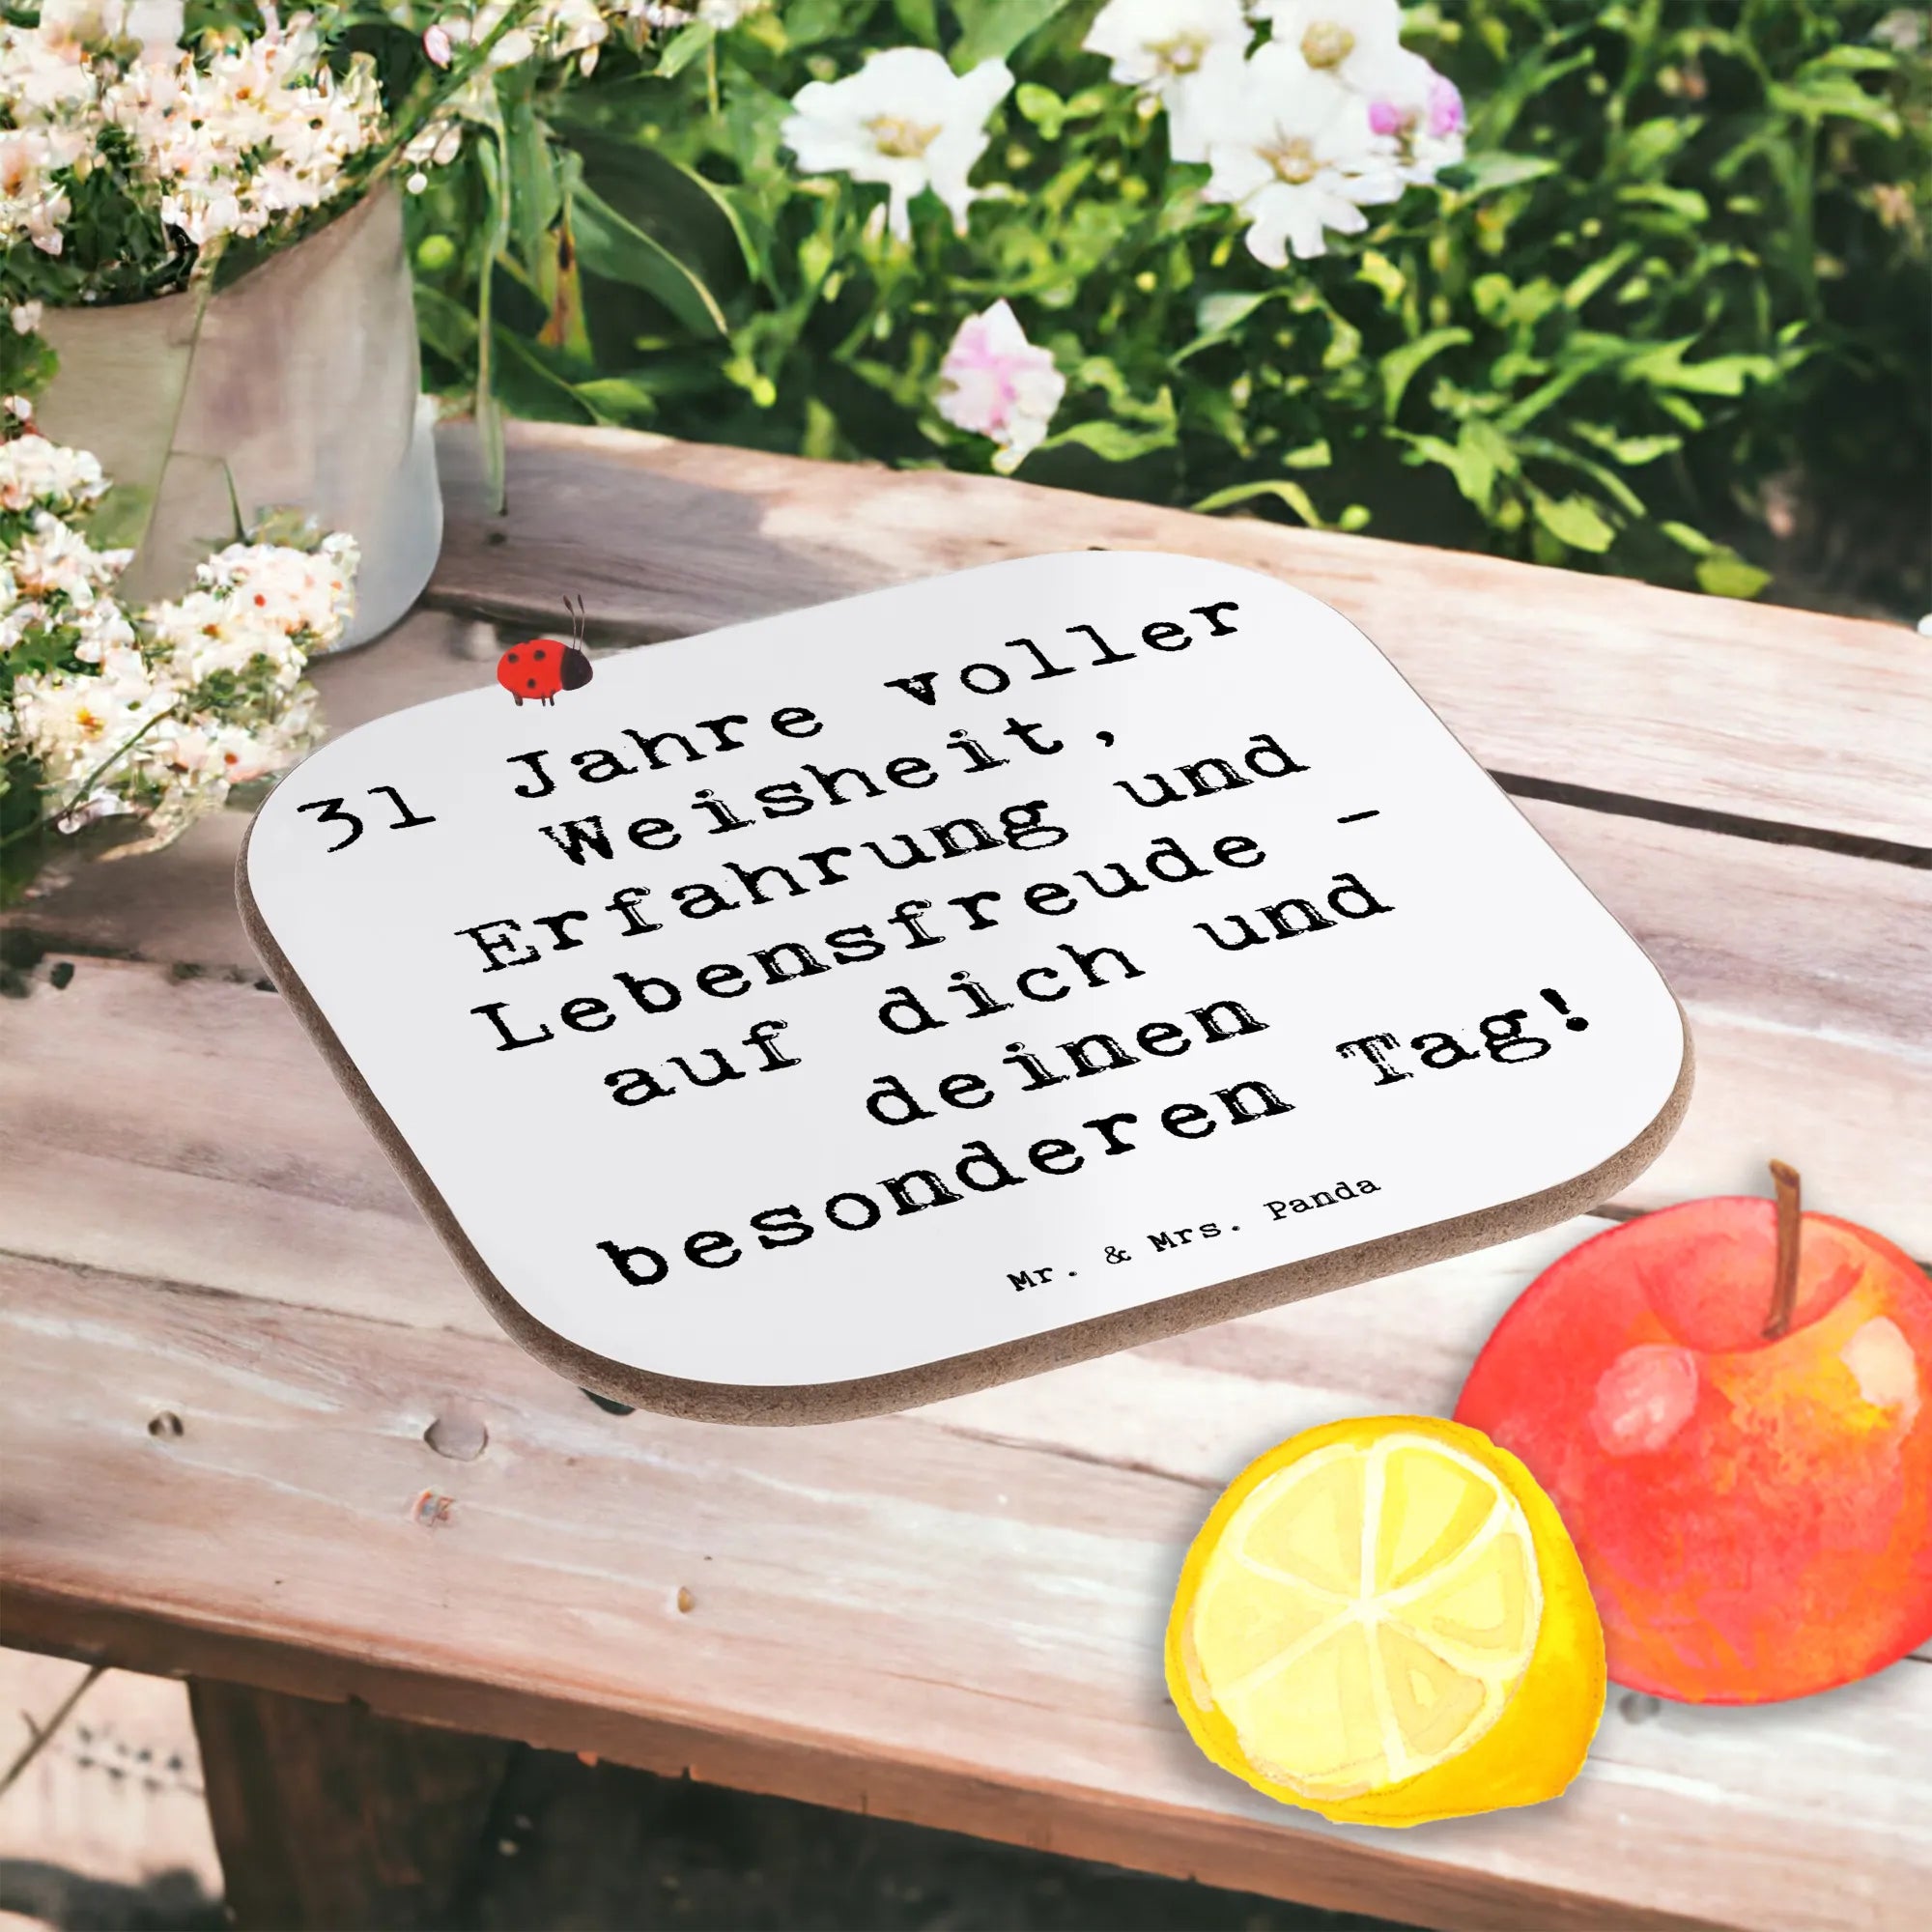 31 Jahre voller
Weisheit,
Erfahrung und
Lebensfreude -
auf dich und
deinen
besonderen Tag!
Mr. & Mrs. Panda